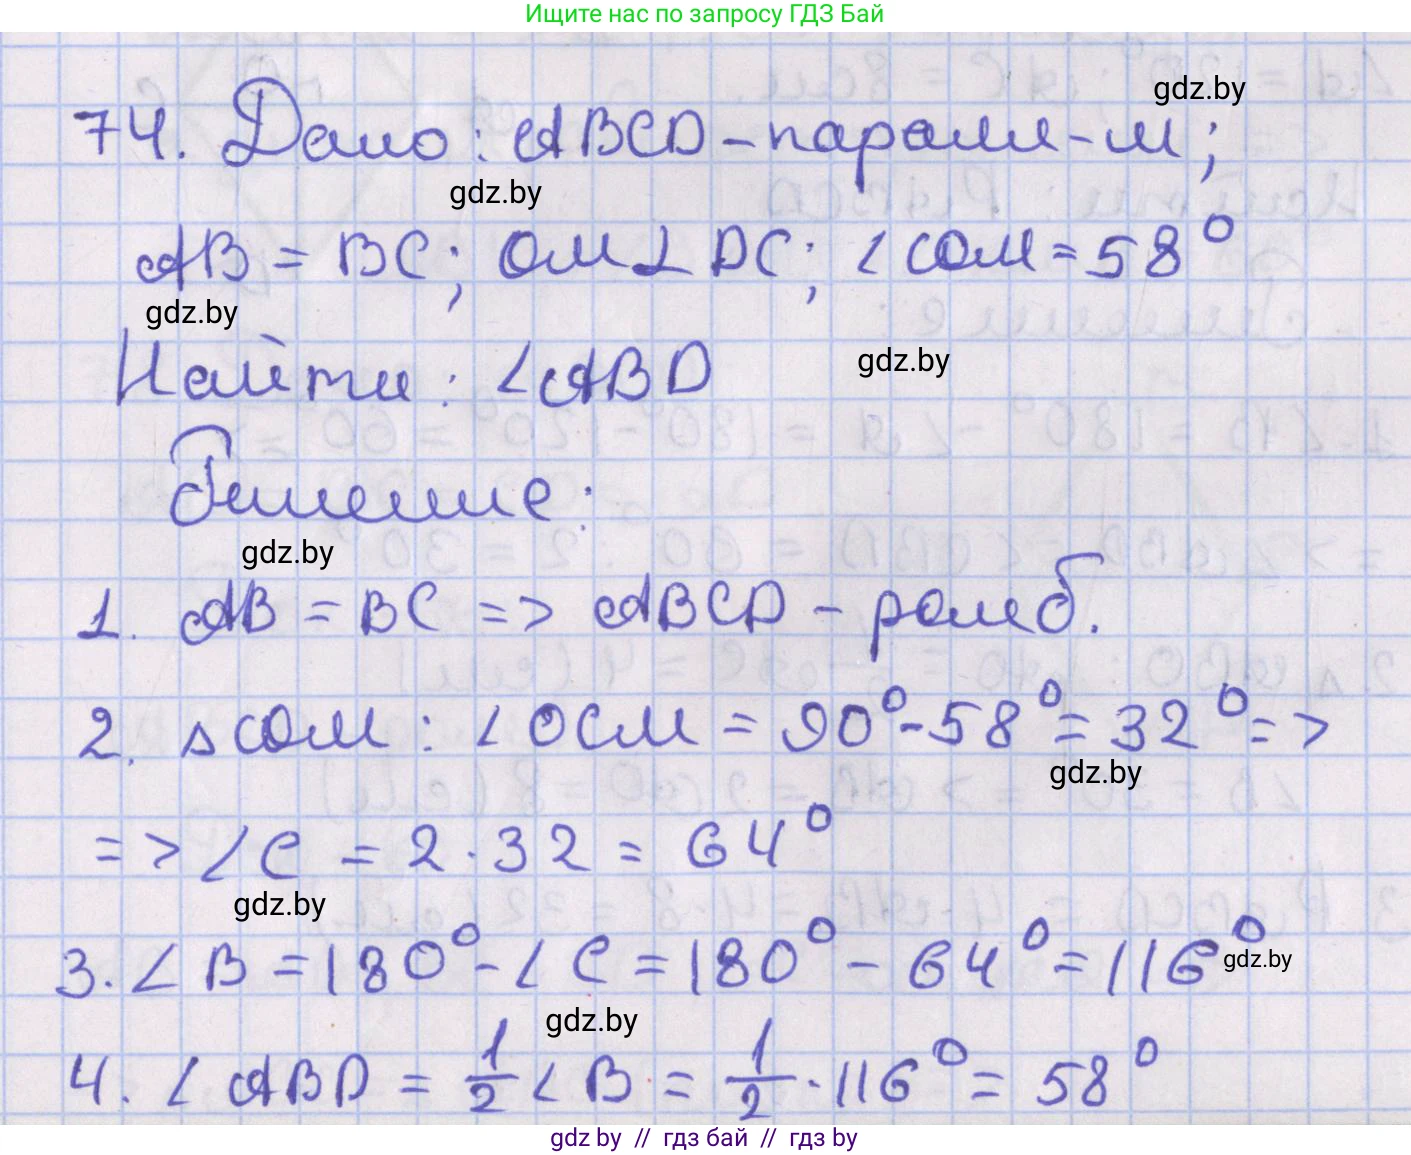 Ищите нас по запросу ГДЗ Бай
gdz.by
74. Дано: ABCD - паралл-м;
gdz.by
AB = BC; OM ⊥ DC; ∠COM = 58°
gdz.by
Найти: ∠ABD
gdz.by
Решение:
gdz.by
1. AB = BC => ABCD - ромб.
2. △COM: ∠OCM = 90° - 58° = 32° =>
gdz.by
=> ∠C = 2 · 32 = 64°
gdz.by
3. ∠B = 180° - ∠C = 180° - 64° = 116°
gdz.by
gdz.by
4. ∠ABD = 1/2 ∠B = 1/2 · 116° = 58°
gdz by // гдз бай // гдз by